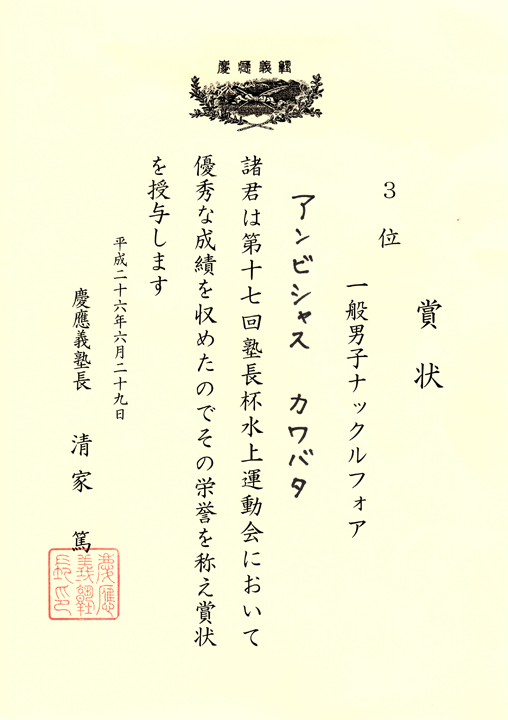 慶應義塾
賞状
3位
一般男子ナックルフォア
アンビシャス カワバタ
諸君は第十七回塾長杯水上運動会において
優秀な成績を収めたのでその栄誉を称え賞状
を授与します
平成二十六年六月二十九日
慶應義塾長 清家 篤
慶應
義塾
長印